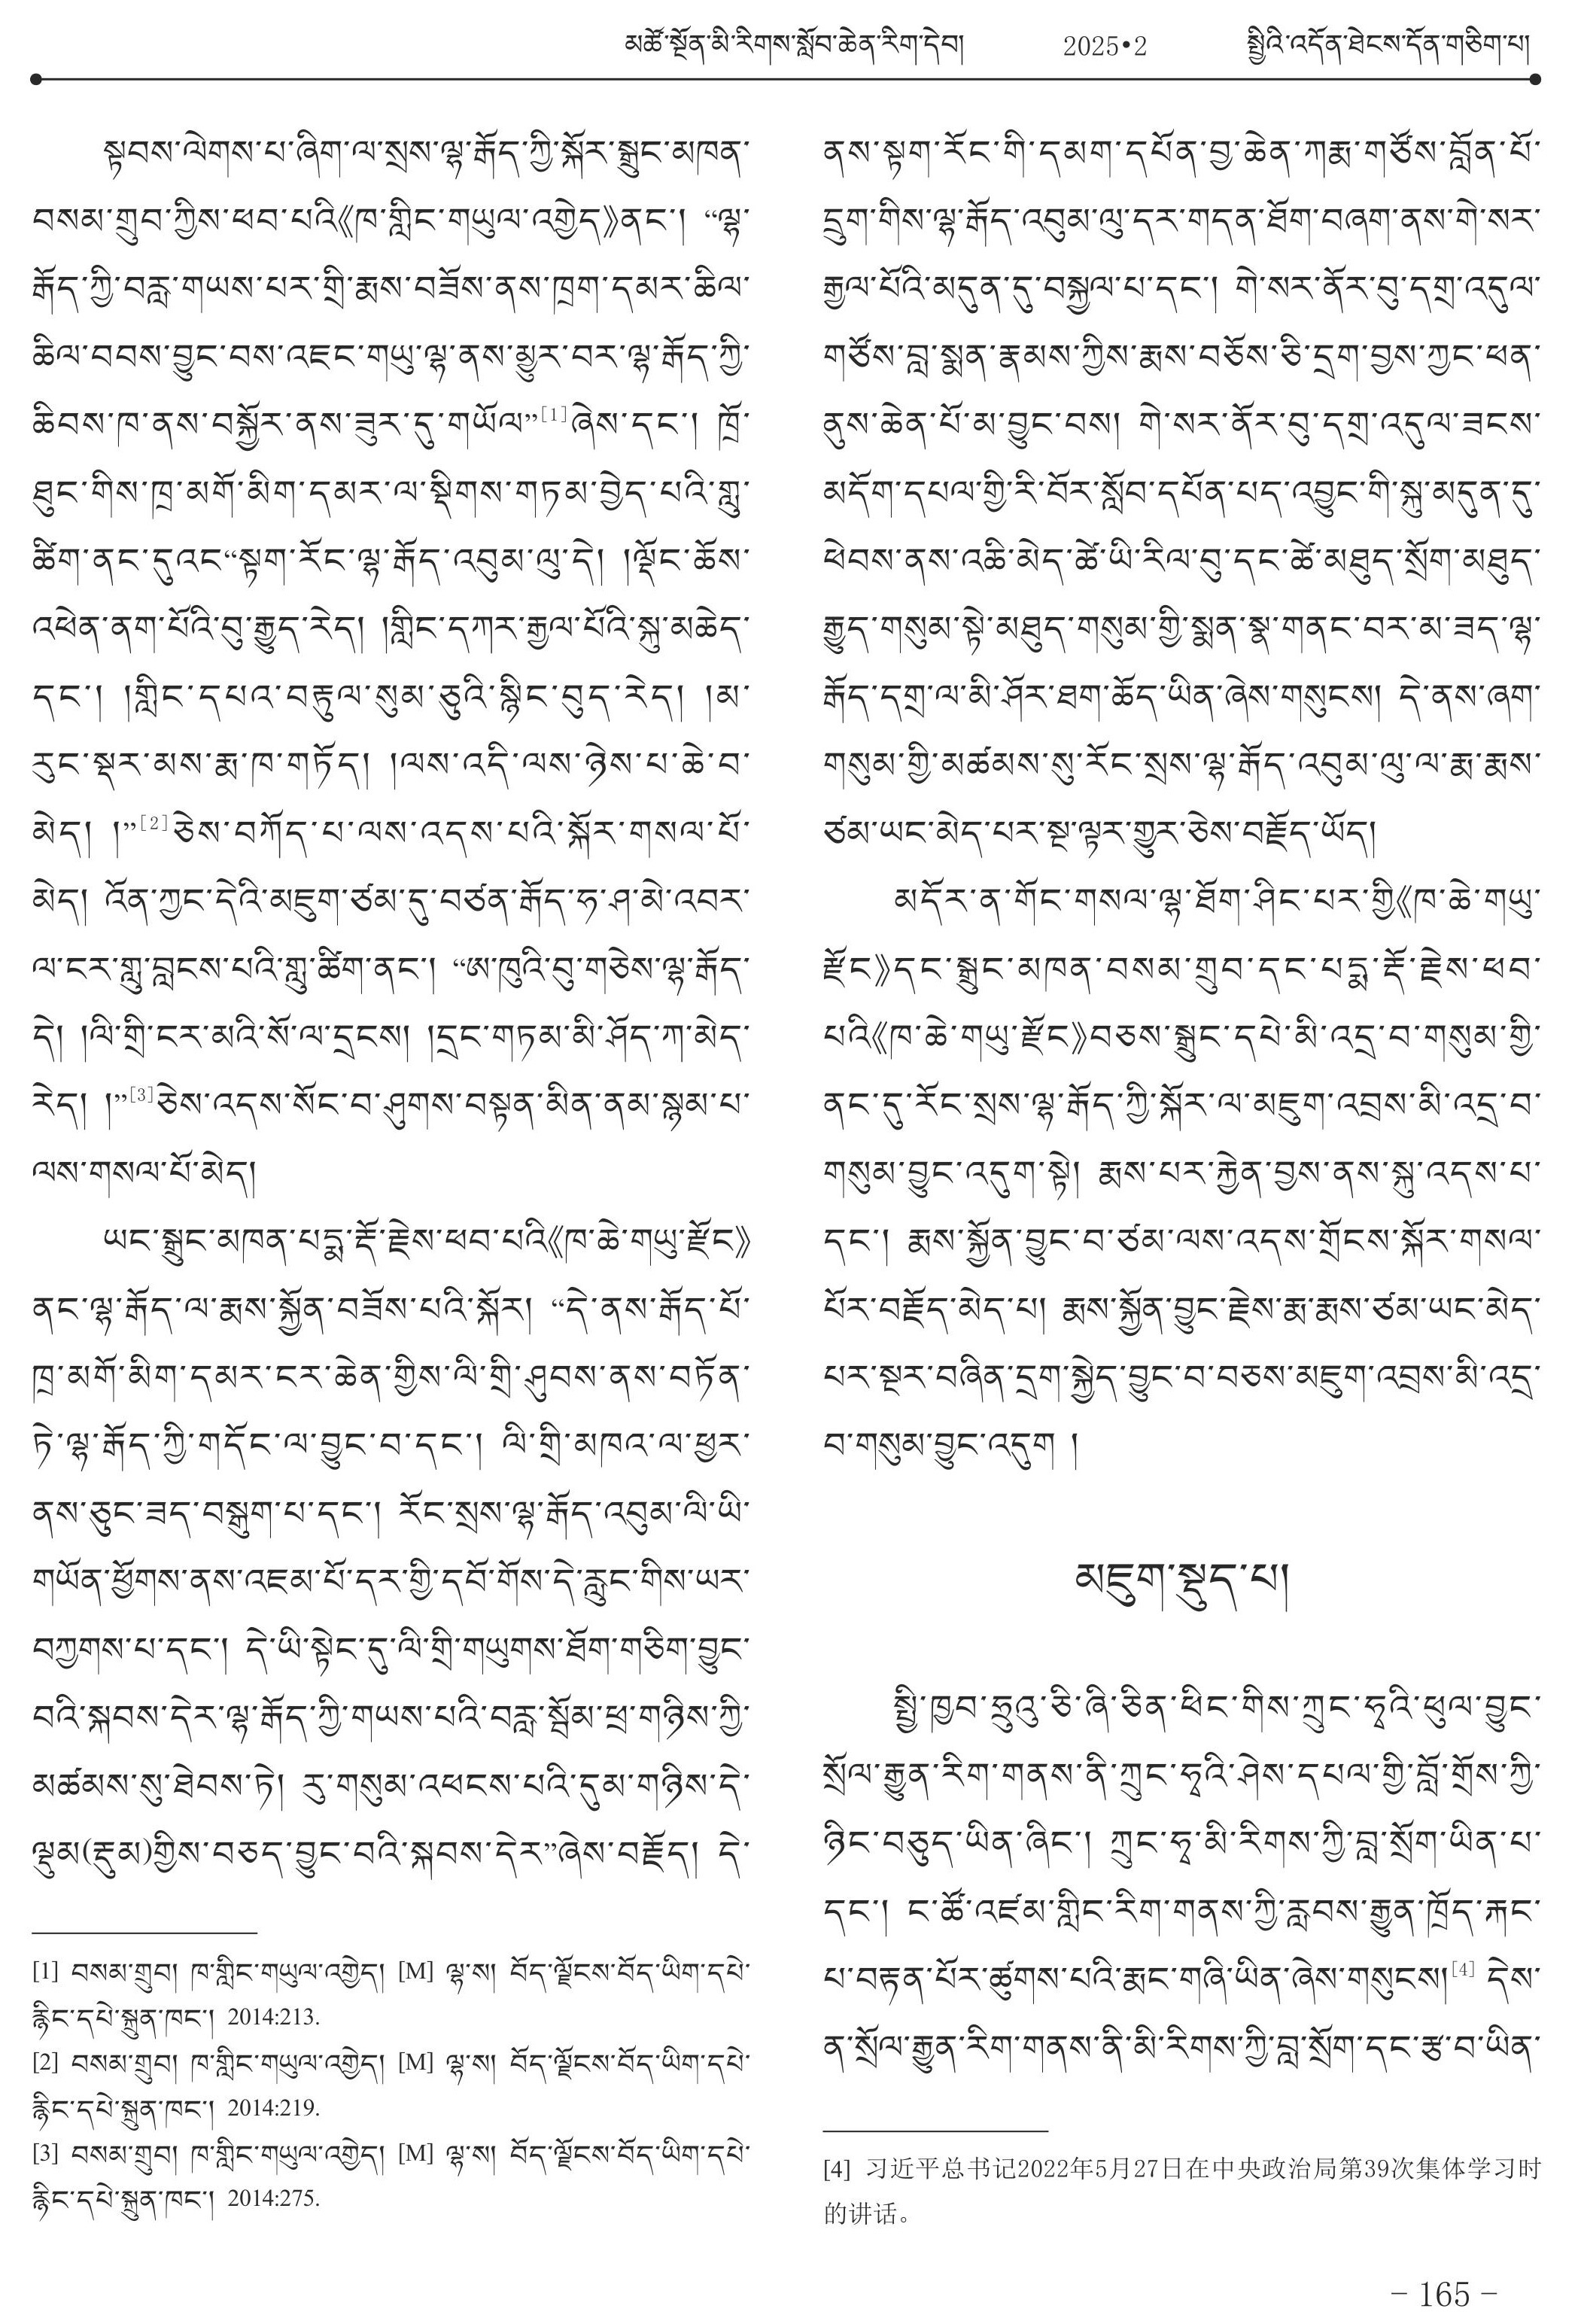 མཚོ་སྔོན་མི་རིགས་སློབ་ཆེན་རིག་དེབ། 2025•2 སྤྱིའི་འདོན་ཐེངས་དོན་གཅིག་པ།
སྟབས་ལེགས་པ་ཞིག་ལ་སྲས་ལྷ་རྒོད་ཀྱི་སྐོར་སྒྲུང་མཁན་
བསམ་གྲུབ་ཀྱིས་ཕབ་པའི《ཁ་གླིང་གཡུལ་འགྱེད》ནང་། “ལྷ་
རྒོད་ཀྱི་བརླ་གཡས་པར་གྲི་རྨས་བཟོས་ནས་ཁྲག་དམར་ཆིལ་
ཆིལ་བབས་བྱུང་བས་འཇང་གཡུ་ལྷ་ནས་མྱུར་བར་ལྷ་རྒོད་ཀྱི་
ཆིབས་ཁ་ནས་བསྐྱོར་ནས་ཟུར་དུ་གཡོལ”[1]ཞེས་དང་། ཁྲོ་
ཐུང་གིས་ཁྲ་མགོ་མིག་དམར་ལ་སྡིགས་གཏམ་བྱེད་པའི་གླུ་
ཚིག་ནང་དུའང“སྟག་རོང་ལྷ་རྒོད་འབུམ་ལུ་དེ། །ལྡོང་ཆོས་
འཕེན་ནག་པོའི་བུ་རྒྱུད་རེད། །གླིང་དཀར་རྒྱལ་པོའི་སྐུ་མཆེད་
དང་། །གླིང་དཔའ་བརྟུལ་སུམ་ཅུའི་སྙིང་བུད་རེད། །མ་
རུང་སྡར་མས་རྨ་ཁ་གཏོད། །ལས་འདི་ལས་ཉེས་པ་ཆེ་བ་
མེད། །”[2]ཅེས་བཀོད་པ་ལས་འདས་པའི་སྐོར་གསལ་པོ་
མེད། འོན་ཀྱང་དེའི་མཇུག་ཙམ་དུ་བཙན་རྒོད་ཧ་ཤ་མེ་འབར་
ལ་ངར་གླུ་བླངས་པའི་གླུ་ཚིག་ནང་། “ཨ་ཁུའི་བུ་གཅེས་ལྷ་རྒོད་
དེ། །ལི་གྲི་ངར་མའི་སོ་ལ་དྲངས། །དྲང་གཏམ་མི་ཤོད་ཀ་མེད་
རེད། །”[3]ཅེས་འདས་སོང་བ་ཤུགས་བསྟན་མིན་ནམ་སྙམ་པ་
ལས་གསལ་པོ་མེད།
ཡང་སྒྲུང་མཁན་པདྨ་རྡོ་རྗེས་ཕབ་པའི《ཁ་ཆེ་གཡུ་རྫོང》
ནང་ལྷ་རྒོད་ལ་རྨས་སྐྱོན་བཟོས་པའི་སྐོར། “དེ་ནས་རྒོད་པོ་
ཁྲ་མགོ་མིག་དམར་ངར་ཆེན་གྱིས་ལི་གྲི་ཤུབས་ནས་བཏོན་
ཏེ་ལྷ་རྒོད་ཀྱི་གདོང་ལ་བྱུང་བ་དང་། ལི་གྲི་མཁའ་ལ་ཕྱར་
ནས་ཅུང་ཟད་བསྒུག་པ་དང་། རོང་སྲས་ལྷ་རྒོད་འབུམ་ལི་ཡི་
གཡོན་ཕྱོགས་ནས་འཇམ་པོ་དར་གྱི་དབོ་གོས་དེ་རླུང་གིས་ཡར་
བཀྱགས་པ་དང་། དེ་ཡི་སྟེང་དུ་ལི་གྲི་གཡུགས་ཐོག་གཅིག་བྱུང་
བའི་སྐབས་དེར་ལྷ་རྒོད་ཀྱི་གཡས་པའི་བརླ་སྦོམ་ཕྲ་གཉིས་ཀྱི་
མཚམས་སུ་ཐེབས་ཏེ། རུ་གསུམ་འཕངས་པའི་དུམ་གཉིས་དེ་
ལྡུམ(རྡུམ)གྱིས་བཅད་བྱུང་བའི་སྐབས་དེར”ཞེས་བརྗོད། དེ་
[1] བསམ་གྲུབ། ཁ་གླིང་གཡུལ་འགྱེད། [M] ལྷ་ས། བོད་ལྗོངས་བོད་ཡིག་དཔེ་
རྙིང་དཔེ་སྐྲུན་ཁང་། 2014:213.
[2] བསམ་གྲུབ། ཁ་གླིང་གཡུལ་འགྱེད། [M] ལྷ་ས། བོད་ལྗོངས་བོད་ཡིག་དཔེ་
རྙིང་དཔེ་སྐྲུན་ཁང་། 2014:219.
[3] བསམ་གྲུབ། ཁ་གླིང་གཡུལ་འགྱེད། [M] ལྷ་ས། བོད་ལྗོངས་བོད་ཡིག་དཔེ་
རྙིང་དཔེ་སྐྲུན་ཁང་། 2014:275.
ནས་སྟག་རོང་གི་དམག་དཔོན་བྱ་ཆེན་ཀརྨ་གཙོས་བློན་པོ་
དྲུག་གིས་ལྷ་རྒོད་འབུམ་ལུ་དར་གདན་ཐོག་བཞག་ནས་གེ་སར་
རྒྱལ་པོའི་མདུན་དུ་བསྐྱལ་པ་དང་། གེ་སར་ནོར་བུ་དགྲ་འདུལ་
གཙོས་བླ་སྨན་རྣམས་ཀྱིས་རྨས་བཅོས་ཅི་དྲག་བྱས་ཀྱང་ཕན་
ནུས་ཆེན་པོ་མ་བྱུང་བས། གེ་སར་ནོར་བུ་དགྲ་འདུལ་ཟངས་
མདོག་དཔལ་གྱི་རི་བོར་སློབ་དཔོན་པད་འབྱུང་གི་སྐུ་མདུན་དུ་
ཕེབས་ནས་འཆི་མེད་ཚེ་ཡི་རིལ་བུ་དང་ཚེ་མཐུད་སྲོག་མཐུད་
རྒྱུད་གསུམ་སྟེ་མཐུད་གསུམ་གྱི་སྨན་སྣ་གནང་བར་མ་ཟད་ལྷ་
རྒོད་དགྲ་ལ་མི་ཤོར་ཐག་ཆོད་ཡིན་ཞེས་གསུངས། དེ་ནས་ཞག་
གསུམ་གྱི་མཚམས་སུ་རོང་སྲས་ལྷ་རྒོད་འབུམ་ལུ་ལ་རྨ་རྨས་
ཙམ་ཡང་མེད་པར་སྔ་ལྟར་གྱུར་ཅེས་བརྗོད་ཡོད།
མདོར་ན་གོང་གསལ་ལྷ་ཐོག་ཤིང་པར་གྱི《ཁ་ཆེ་གཡུ་
རྫོང》དང་སྒྲུང་མཁན་བསམ་གྲུབ་དང་པདྨ་རྡོ་རྗེས་ཕབ་
པའི《ཁ་ཆེ་གཡུ་རྫོང》བཅས་སྒྲུང་དཔེ་མི་འདྲ་བ་གསུམ་གྱི་
ནང་དུ་རོང་སྲས་ལྷ་རྒོད་ཀྱི་སྐོར་ལ་མཇུག་འབྲས་མི་འདྲ་བ་
གསུམ་བྱུང་འདུག་སྟེ། རྨས་པར་རྐྱེན་བྱས་ནས་སྐུ་འདས་པ་
དང་། རྨས་སྐྱོན་བྱུང་བ་ཙམ་ལས་འདས་གྲོངས་སྐོར་གསལ་
པོར་བརྗོད་མེད་པ། རྨས་སྐྱོན་བྱུང་རྗེས་རྨ་རྨས་ཙམ་ཡང་མེད་
པར་སྔར་བཞིན་དྲག་སྐྱེད་བྱུང་བ་བཅས་མཇུག་འབྲས་མི་འདྲ་
བ་གསུམ་བྱུང་འདུག །
མཇུག་སྡུད་པ།
སྤྱི་ཁྱབ་ཧྲུའུ་ཅི་ཞི་ཅིན་ཕིང་གིས་ཀྲུང་ཧྭའི་ཕུལ་བྱུང་
སྲོལ་རྒྱུན་རིག་གནས་ནི་ཀྲུང་ཧྭའི་ཤེས་དཔལ་གྱི་བློ་གྲོས་ཀྱི་
ཉིང་བཅུད་ཡིན་ཞིང་། ཀྲུང་ཧྭ་མི་རིགས་ཀྱི་བླ་སྲོག་ཡིན་པ་
དང་། ང་ཚོ་འཛམ་གླིང་རིག་གནས་ཀྱི་རླབས་རྒྱུན་ཁྲོད་རྐང་
པ་བརྟན་པོར་ཚུགས་པའི་རྨང་གཞི་ཡིན་ཞེས་གསུངས།[4] དེས་
ན་སྲོལ་རྒྱུན་རིག་གནས་ནི་མི་རིགས་ཀྱི་བླ་སྲོག་དང་རྩ་བ་ཡིན་
[4] 习近平总书记2022年5月27日在中央政治局第39次集体学习时
的讲话。
– 165 –